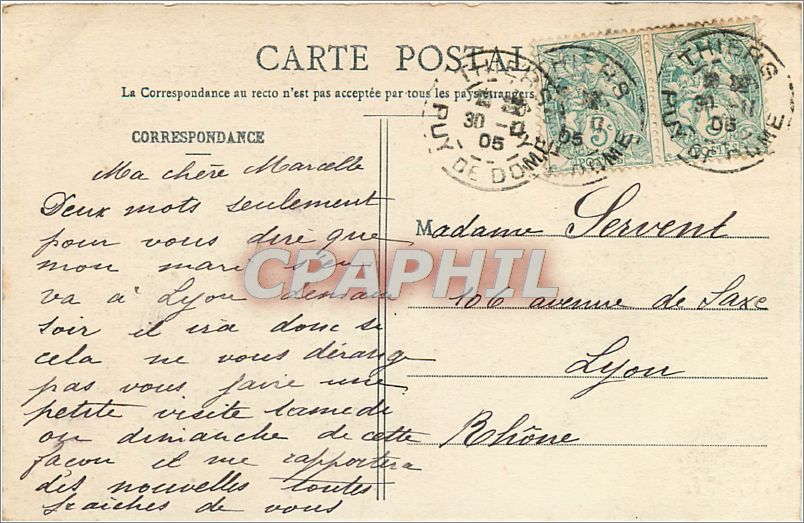 CARTE POSTALE
La Correspondance au recto n'est pas acceptée par tous les pays étrangers
CORRESPONDANCE
Ma chère Marcelle
Deux mots seulement
pour vous dire que
mon mari
va à Lyon demain
soir il ira donc si
cela ne vous dérange
pas vous faire une
petite visite samedi
ou dimanche de cette
façon il me rapportera
des nouvelles toutes
fraiches de vous
Madame Servent
106 avenue de Saxe
Lyon
Rhône
THIERS
30 -11
05
PUY DE DOME
THIERS
11
05
DOME
THIERS
30 -11
05
PUY DE DOME
5c
POSTES
CPAPHIL